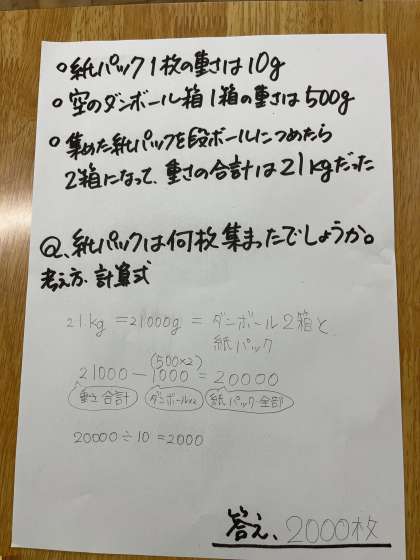 ○紙パック1枚の重さは10g
○空のダンボール箱1箱の重さは500g
○集めた紙パックを段ボールにつめたら
2箱になって、重さの合計は21kgだった
Q、紙パックは何枚集まったでしょうか。
考え方、計算式
21kg=21000g=ダンボール2箱と
紙パック
(500×2)
21000-1000=20000
重さ合計 ダンボール×2 紙パック全部
20000÷10=2000
答え、2000枚